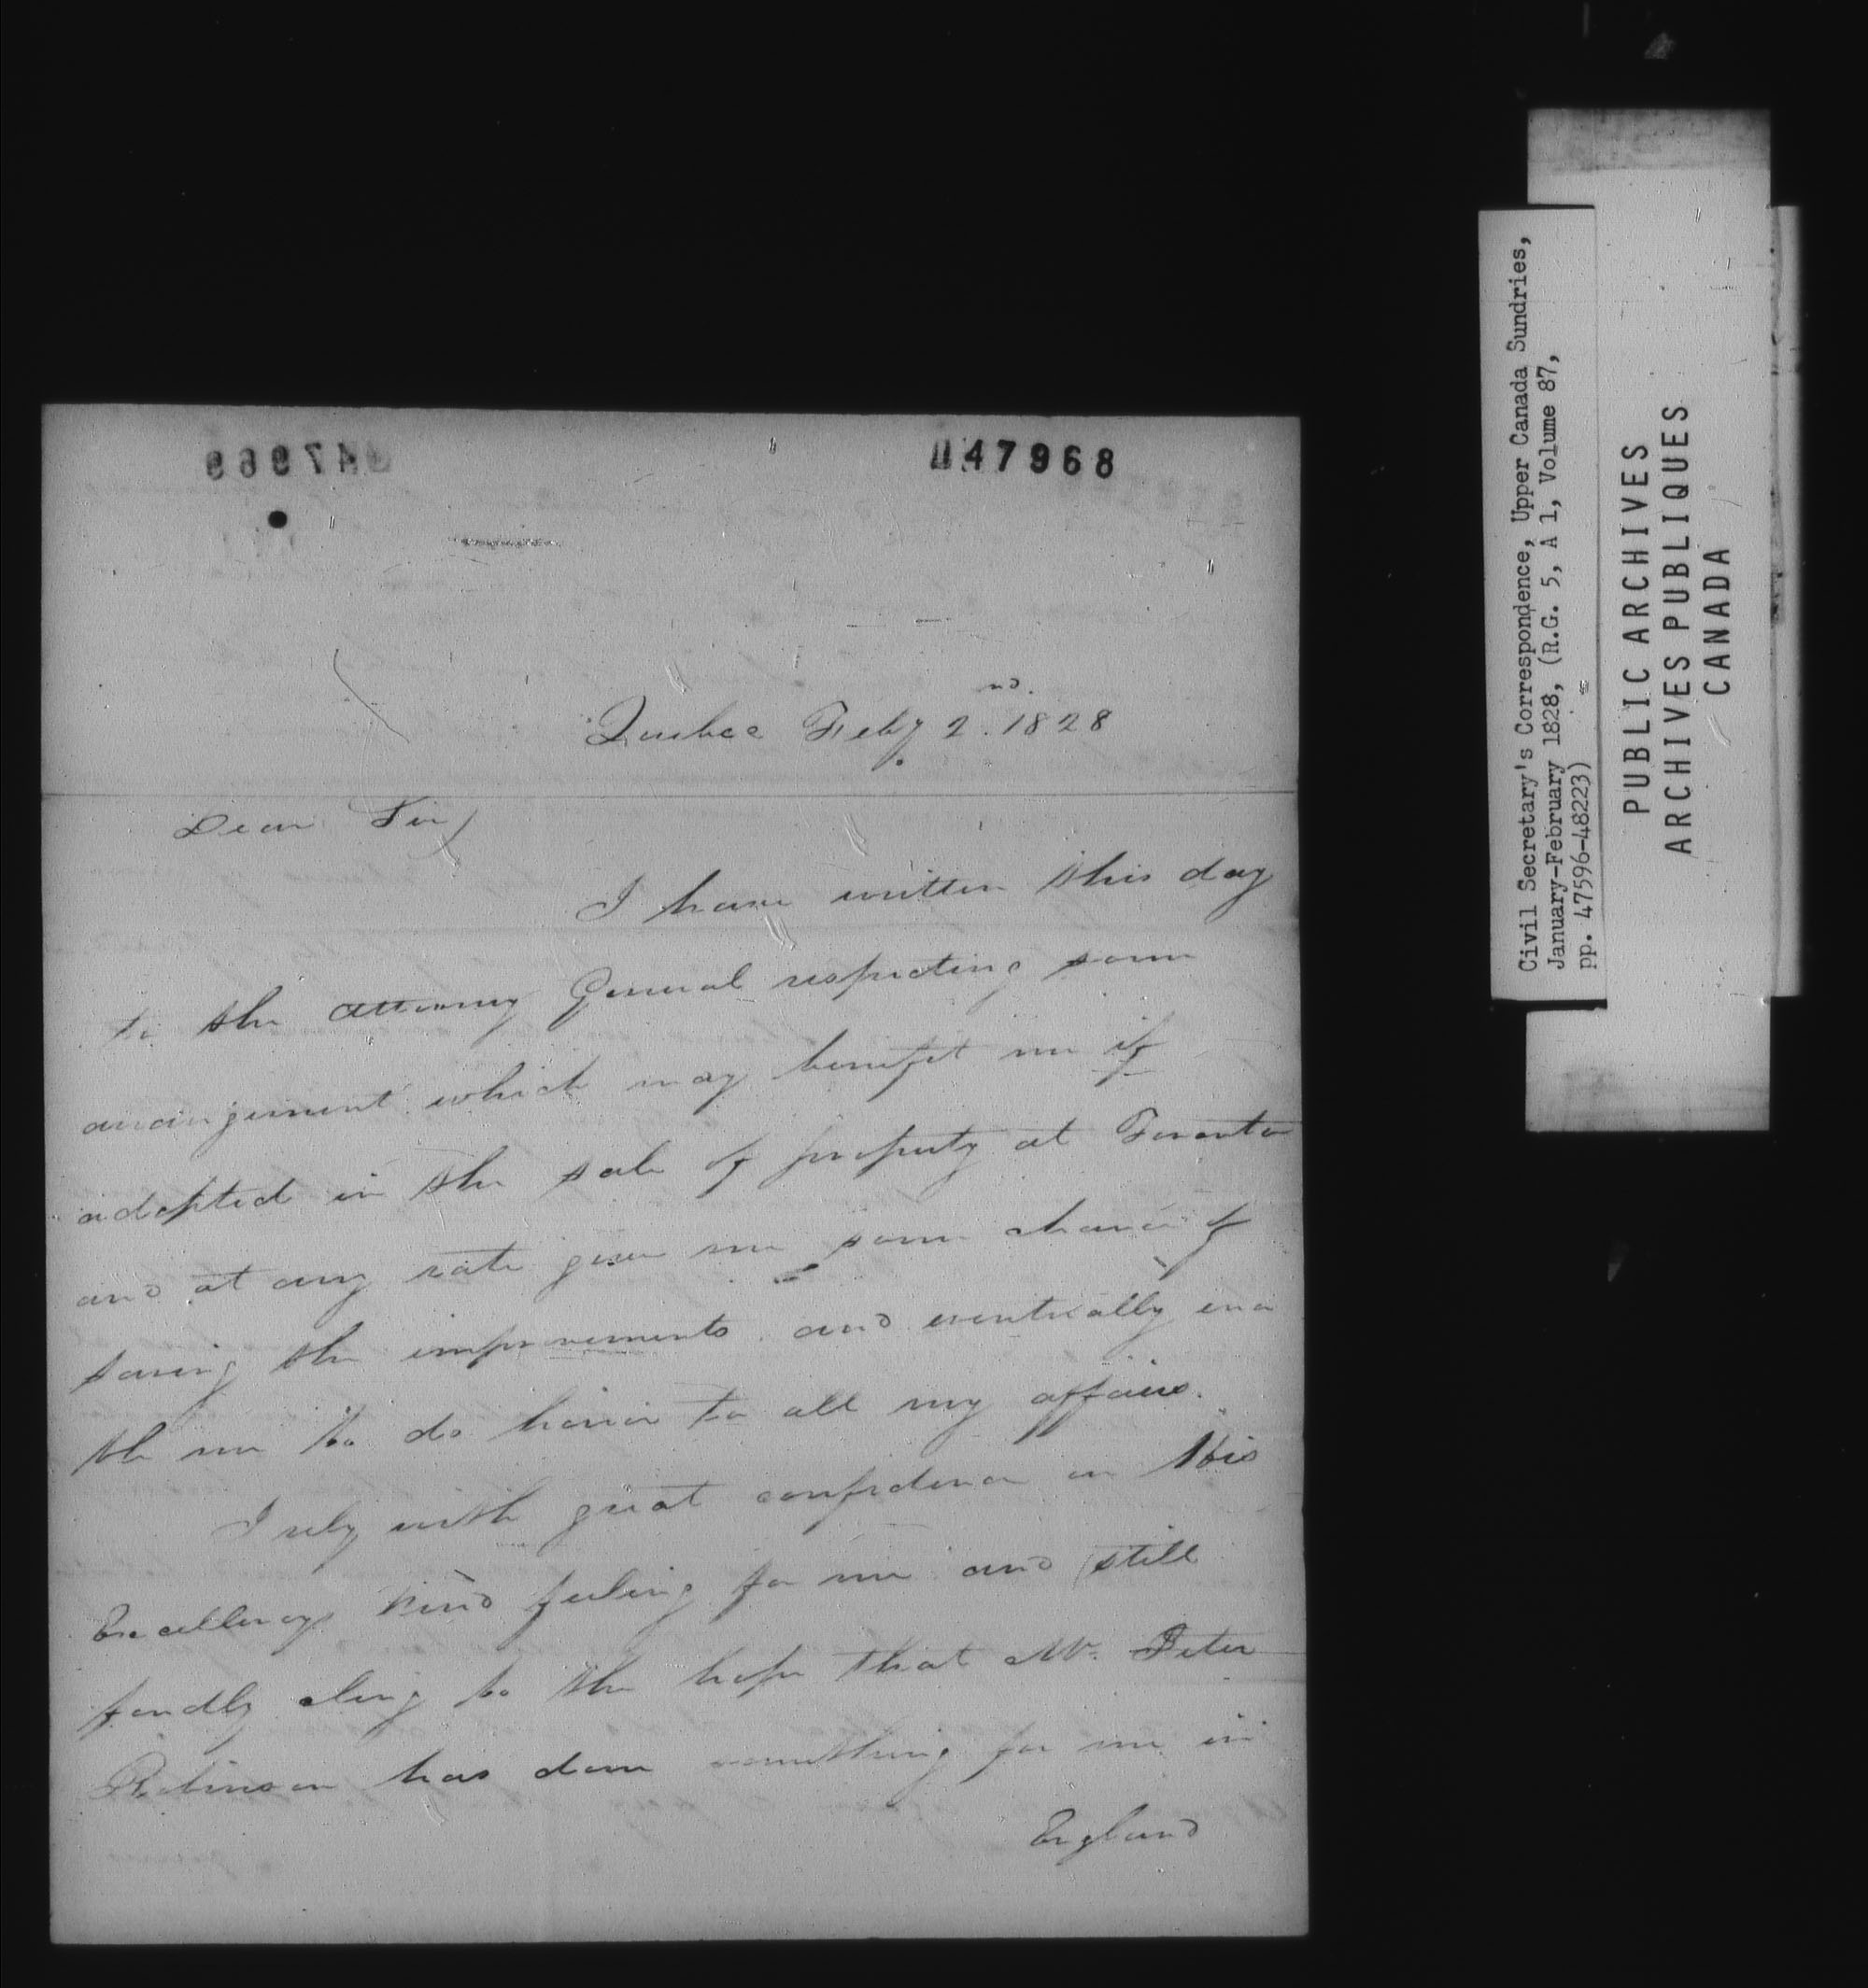 047968
Quebec Feby 2nd. 1828
Dear Sir/
I have written this day
to the Attorney General respecting some
arrangement which may benefit me if
adopted in the sale of property at Toronto
and at any rate give me some chance of
saving the improvements and eventually ena
ble me to do honor to all my affairs.
I rely with great confidence on His
Excellencys kind feeling for me and still
fondly cling to the hope that Mr. Peter
Robinson has done something for me in
England
Civil Secretary's Correspondence, Upper Canada Sundries,
January-February 1828, (R.G. 5, A 1, Volume 87,
pp. 47596-48223)
PUBLIC ARCHIVES
ARCHIVES PUBLIQUES
CANADA